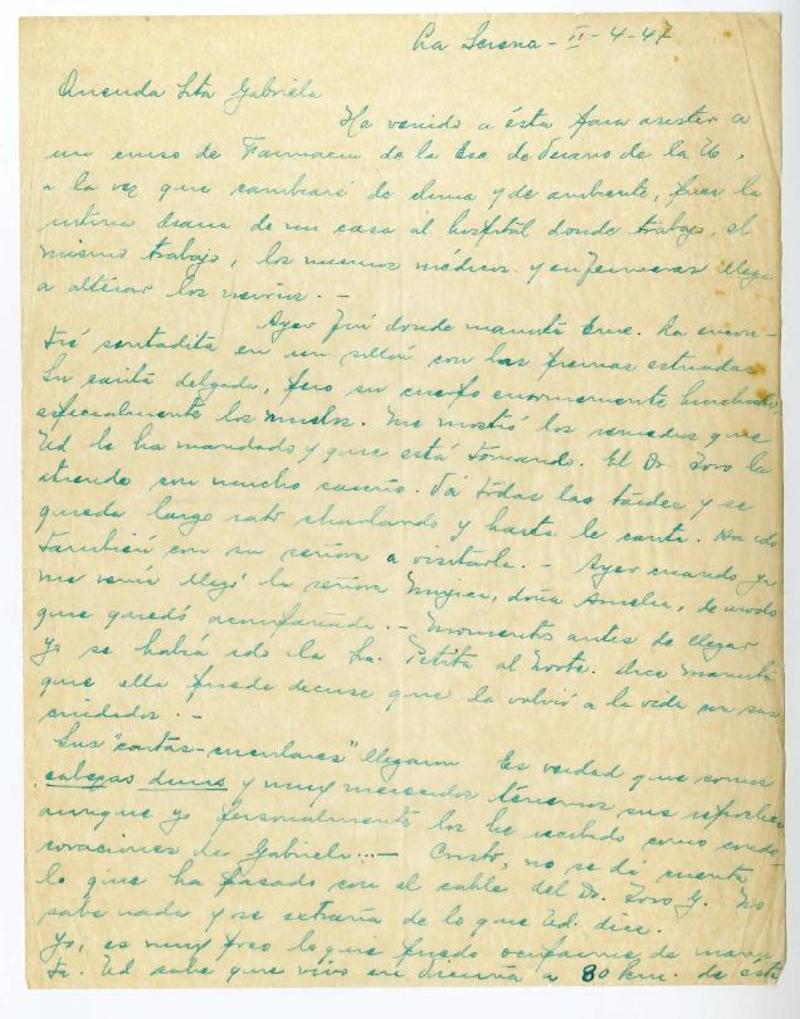 La Serena - II - 4 - 47
Querida Srta Gabriela
He venido a ésta para asistir a
un curso de Farmacia de la Esc de Verano de la U.,
a la vez que cambiaré de clima y de ambiente, pues la
rutina diaria de mi casa al hospital donde trabajo, el
mismo trabajo, los mismos médicos y enfermeras llega
a alterar los nervios. -
Ayer fuí donde manita Eme. La encon-
tré sentadita en un sillón con las piernas estiradas
Su carita delgada, pero su cuerpo enormemente hinchado,
especialmente los muslos. Me mostró los remedios que
Ud le ha mandado y que está tomando. El Dr. Toro la
atiende con mucho cariño. Vá todas las tardes y se
queda largo rato charlando y hasta le canta. Ha ido
también con su señora a visitarla. - Ayer cuando ya
me venía llegó la señora Mujica, doña Amelia, de modo
que quedó acompañada. - Momentos antes de llegar
yo se había ido la Sra. Petita al Norte. Dice manita
que ella puede decirse que la volvió a la vida con sus
cuidados. -
Sus "cartas-circulares" llegaron Es verdad que como
cabezas duras y muy merecidos tenemos sus reproches
aunque yo personalmente los he recibido como conde-
coraciones de Gabriela...- Cristo, no se dá cuenta
lo que ha pasado con el cable del Dr. Toro y. No
sabe nada y se extraña de lo que Ud. dice.
Yo, es muy poco lo que puedo ocuparme de mani
ta. Ud sabe que vivo en Vicuña a 80 km. de ésta